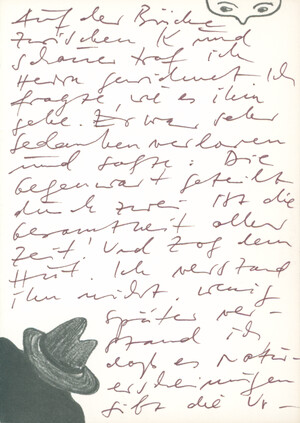 Auf der Brücke
zwischen K und
schauer traf ich
Herrn gewidmet. Ich
fragte, wie es ihm
gehe. Er war sehr
gedankenverloren
und sagte: Die
Gegenwart geteilt
durch zwei ist die
Gesamtheit aller
Zeit! Und zog den
Hut. Ich verstand
ihn nicht. wenig
später ver-
stand ich
daß es Natur-
erscheinungen
gibt die